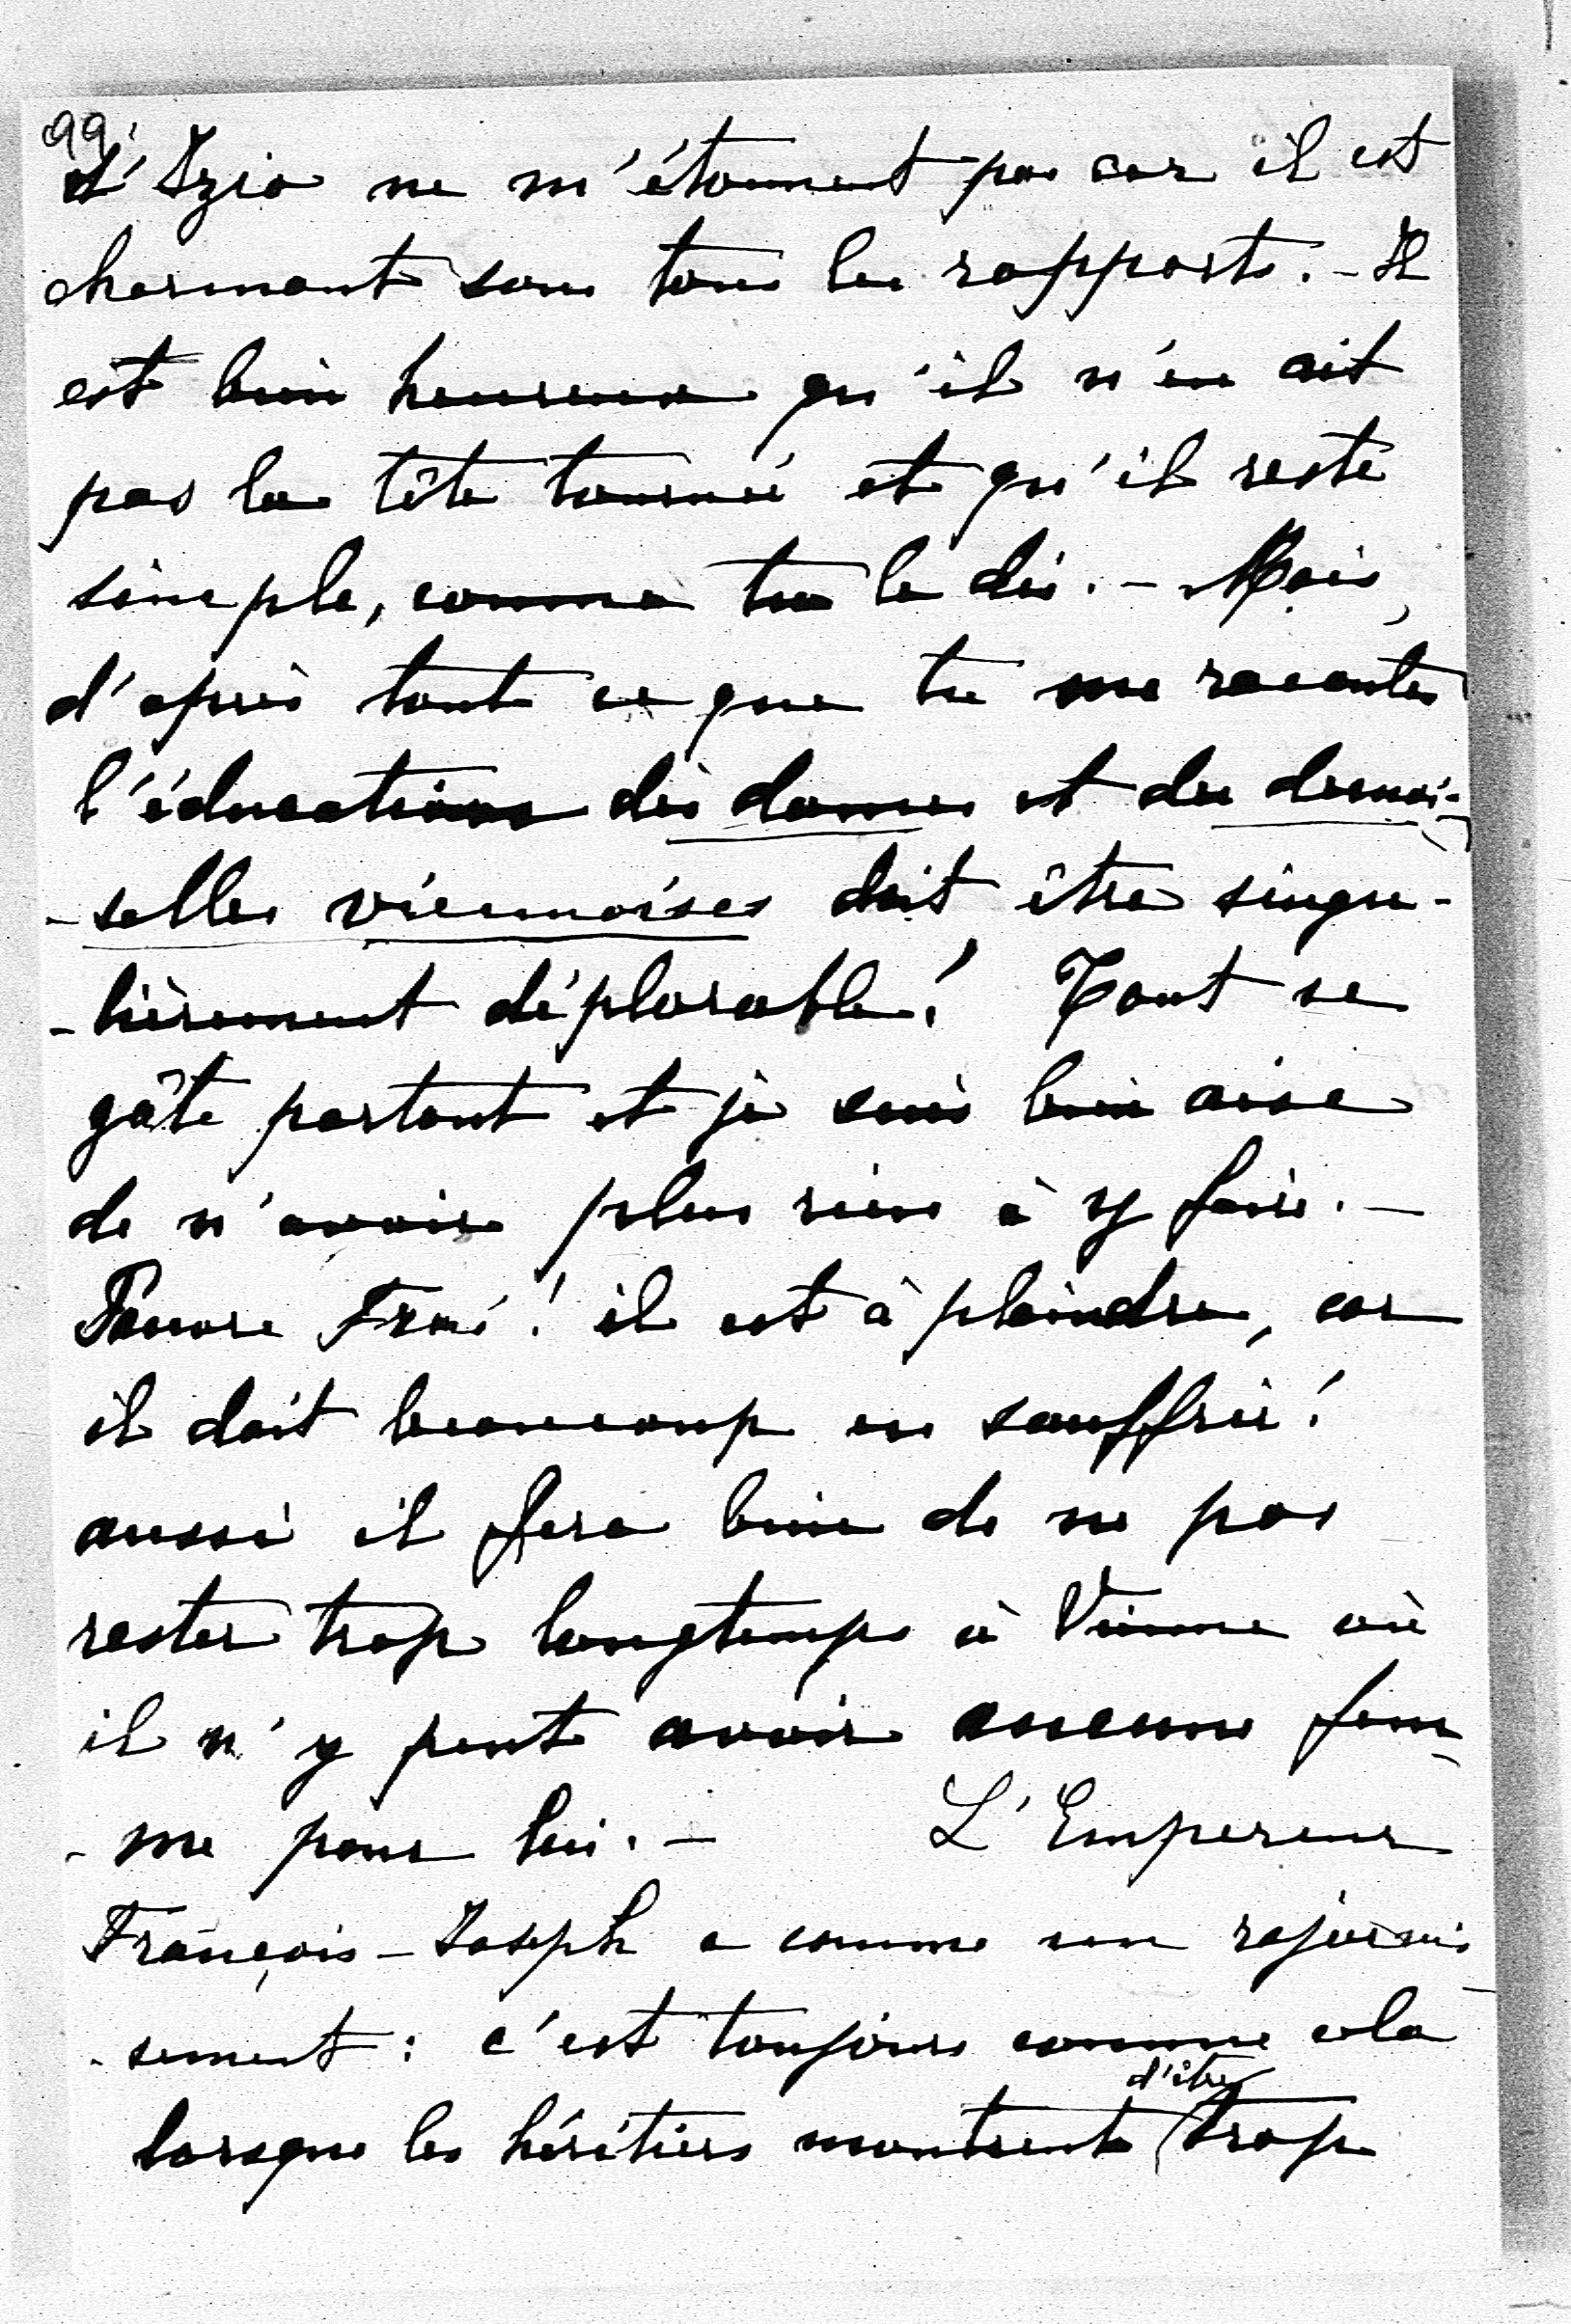 99
d'Izio ne m'étonnent pas car il est
charmant sous tous les rapports. - Il
est bien heureux qu'il n'en ait
pas la tête tournée et qu'il reste
simple, comme tu le dis. - Mais,
d'après tout ce que tu me racontes
l'éducation des dames et des demoi-
-selles viennoises doit être singu-
-lièrement déplorable! Tout se
gâte partout et je suis bien aise
de n'avoir plus rien à y faire. -
Pauvre ! il est à plaindre, car
il doit beaucoup en souffrir!
aussi il fera bien de ne pas
rester trop longtemps à Vienne où
il n'y peut avoir aucune fem-
-me pour lui. - L'Empereur
François-Joseph a comme un rajeunis-
-sement : c'est toujours comme cela
d'être
lorsque les héritiers montrent trop